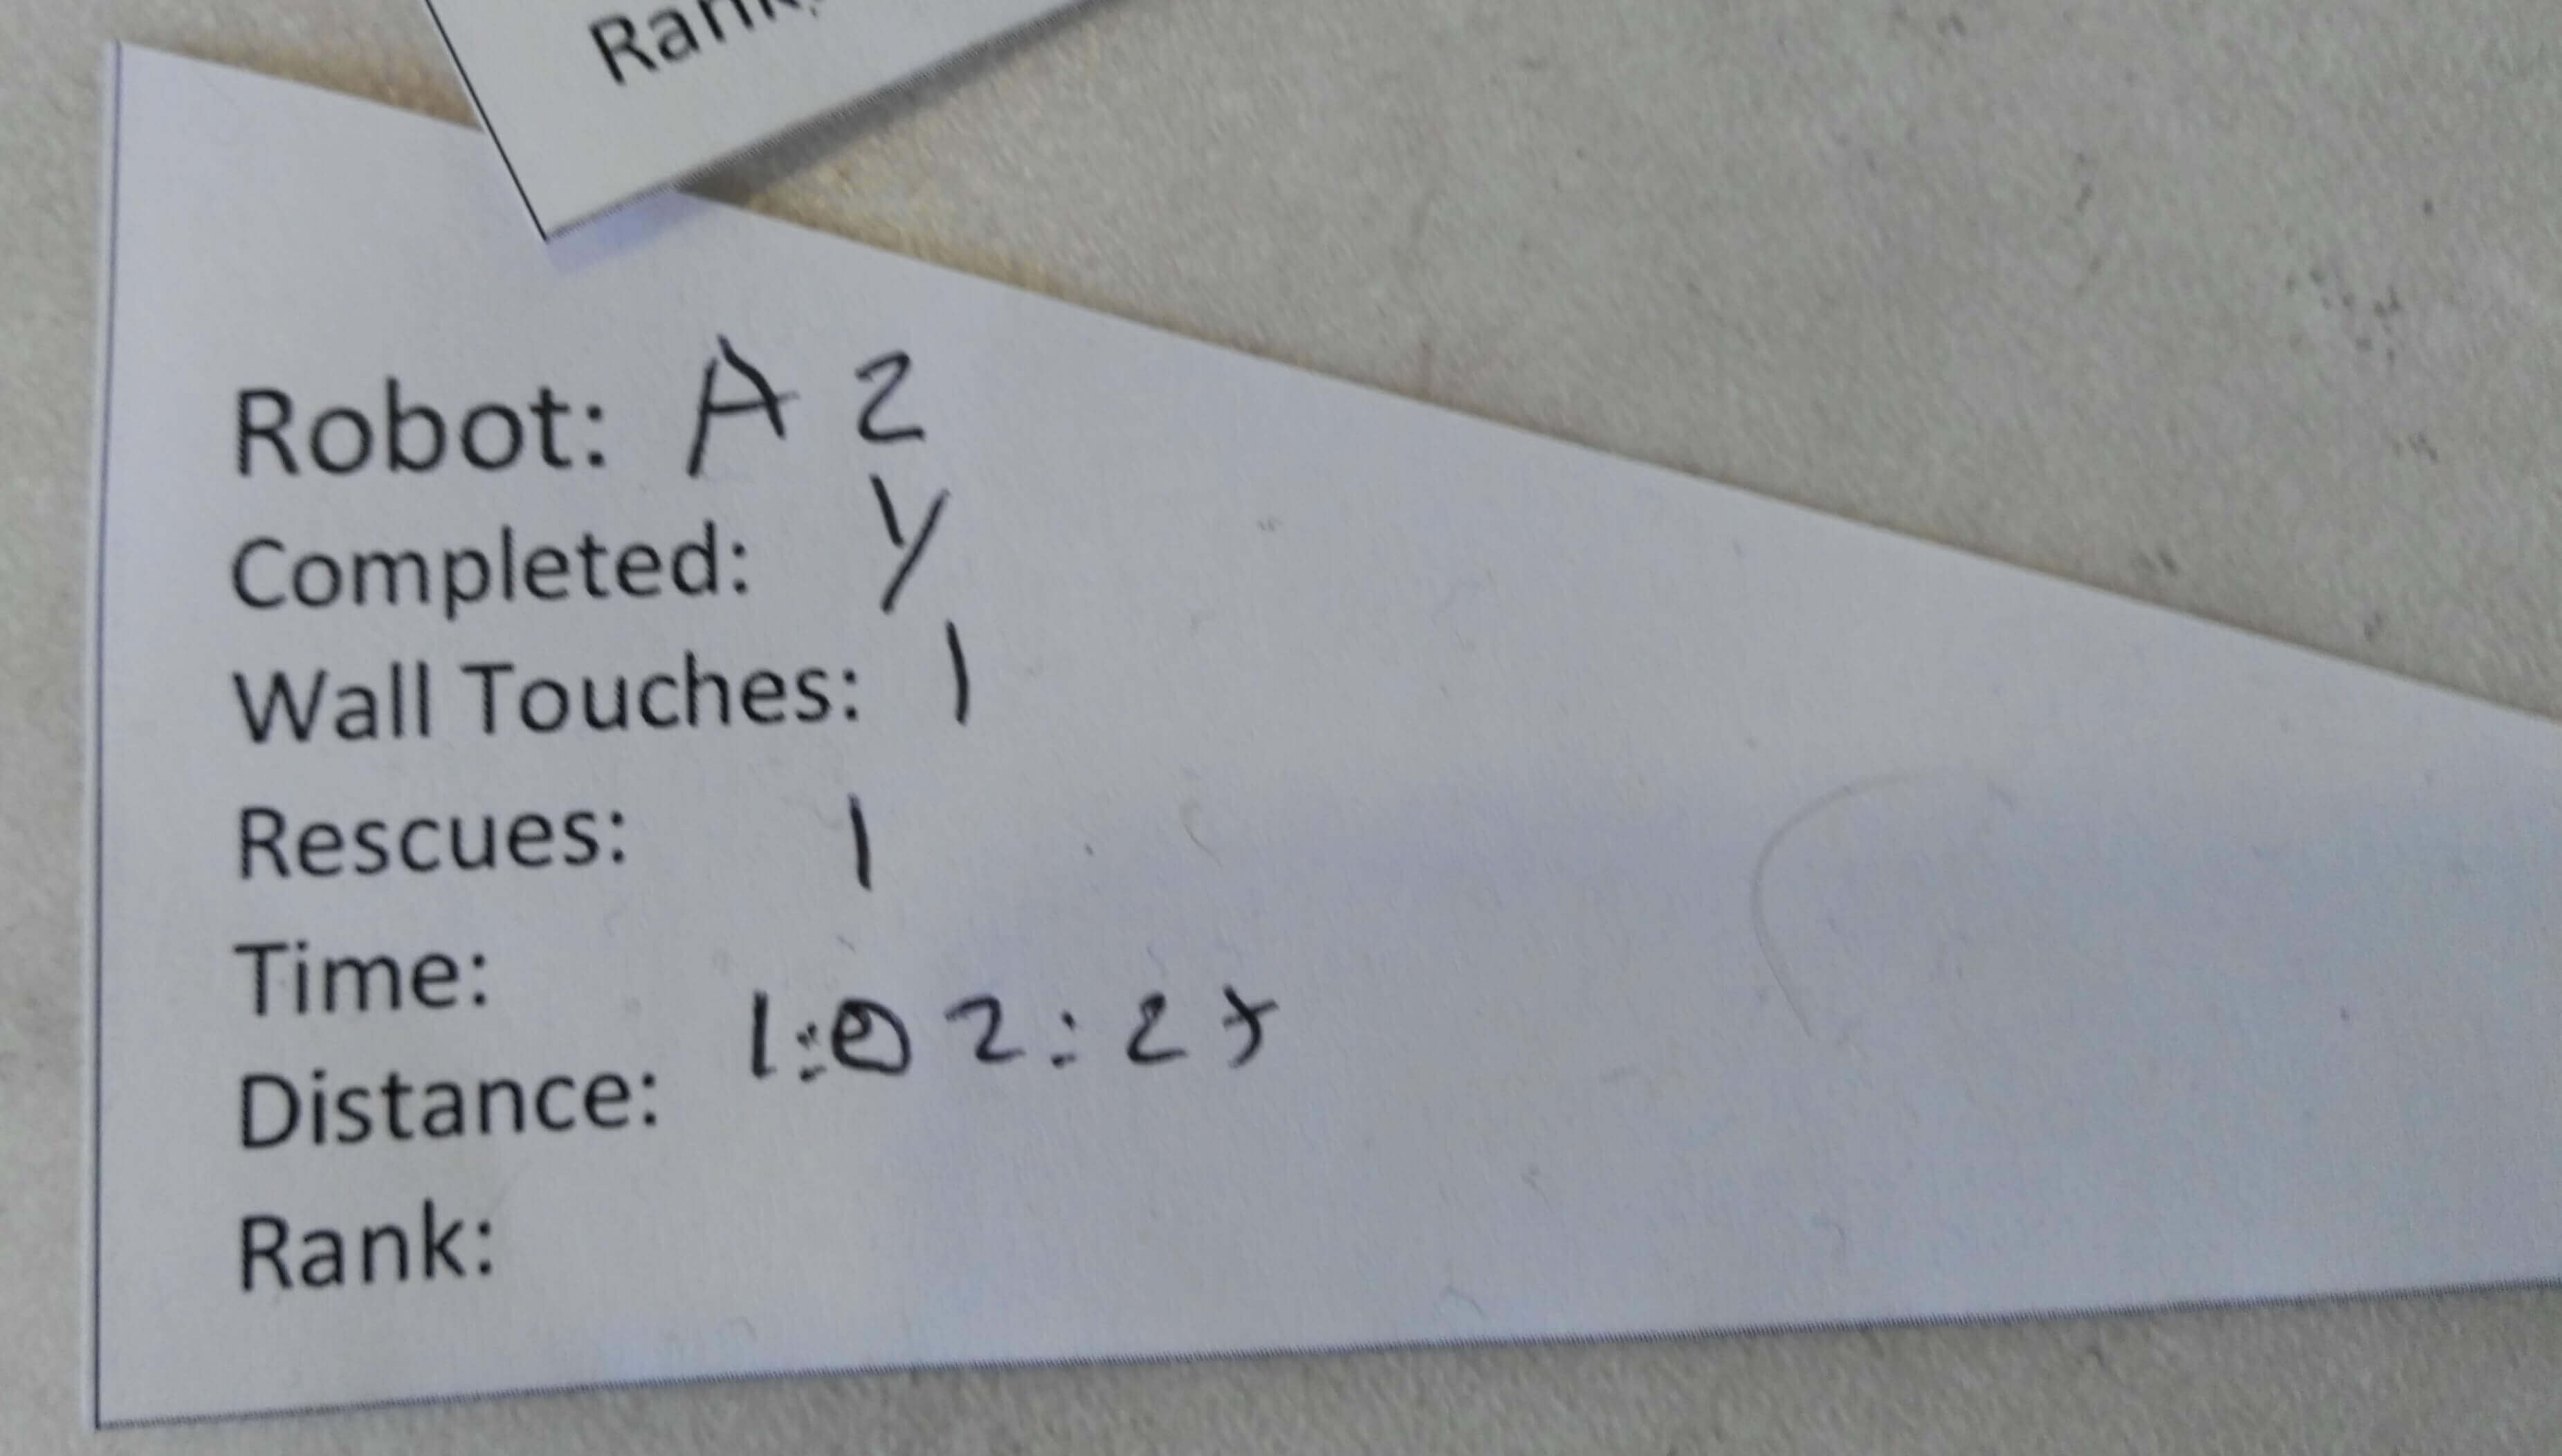 Rank:
Robot: A 2
Completed: Y
Wall Touches: 1
Rescues: 1
Time:
1:02:25
Distance:
Rank: